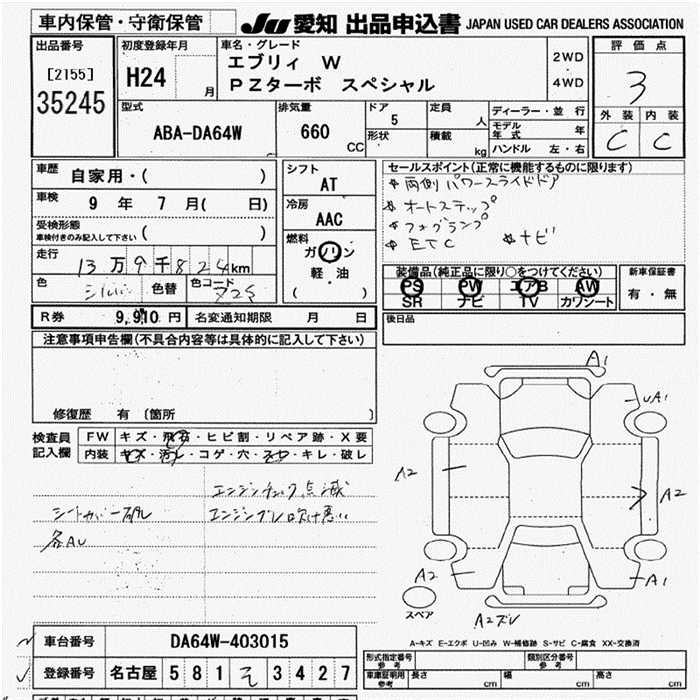 車内保管・守衛保管
JU 愛知 出品申込書 JAPAN USED CAR DEALERS ASSOCIATION
出品番号
[2155]
35245
初度登録年月
H24 月
車名・グレード
エブリィ W
PZターボ スペシャル
2WD
4WD
評価点
3
外装 内装
C C
型式
ABA-DA64W
排気量
660 CC
ドア
5
形状
定員
人
積載
kg
ディーラー・並行
モデル年式 年
ハンドル 左・右
車歴
自家用・( )
車検
9 年 7 月( 日)
受検形態
車検付きのみ記入して下さい ( )
走行
13万9千824km
色
シルバー
色替
色コード
Z2S
シフト
AT
冷房
AAC
燃料
ガソリン
軽・油
( )
セールスポイント(正常に機能するものに限ります)
* 両側パワースライドドア
* オートステップ
* フォグランプ
* ETC * ナビ
装備品(純正品に限り○をつけてください)
PS PW エアB AW
SR ナビ TV カワシート
新車保証書
有・無
R券 9,910 円
名変通知期限 月 日
後日品
注意事項申告欄(不具合内容等は具体的に記入して下さい)
修復歴 有 〔箇所 〕
検査員記入欄
FW キズ・飛石・ヒビ割・リペア跡・X要
内装 キズ・汚れ・コゲ・穴・スレ・キレ・破レ
エンジンチェック点滅
シートカバー破レ エンジンブレ吹け悪い
各AU
A1
UA1
A2
A2
A2
A1
スペア
A2ズレ
A-キズ E-エクボ U-凹み W-補修跡 S-サビ C-腐食 XX-交換済
車台番号 DA64W-403015
登録番号 名古屋 581 そ 3427
形式指定番号 参考
類別区分番号 参考
車庫証明用 参考
長さ cm
幅 cm
高さ cm